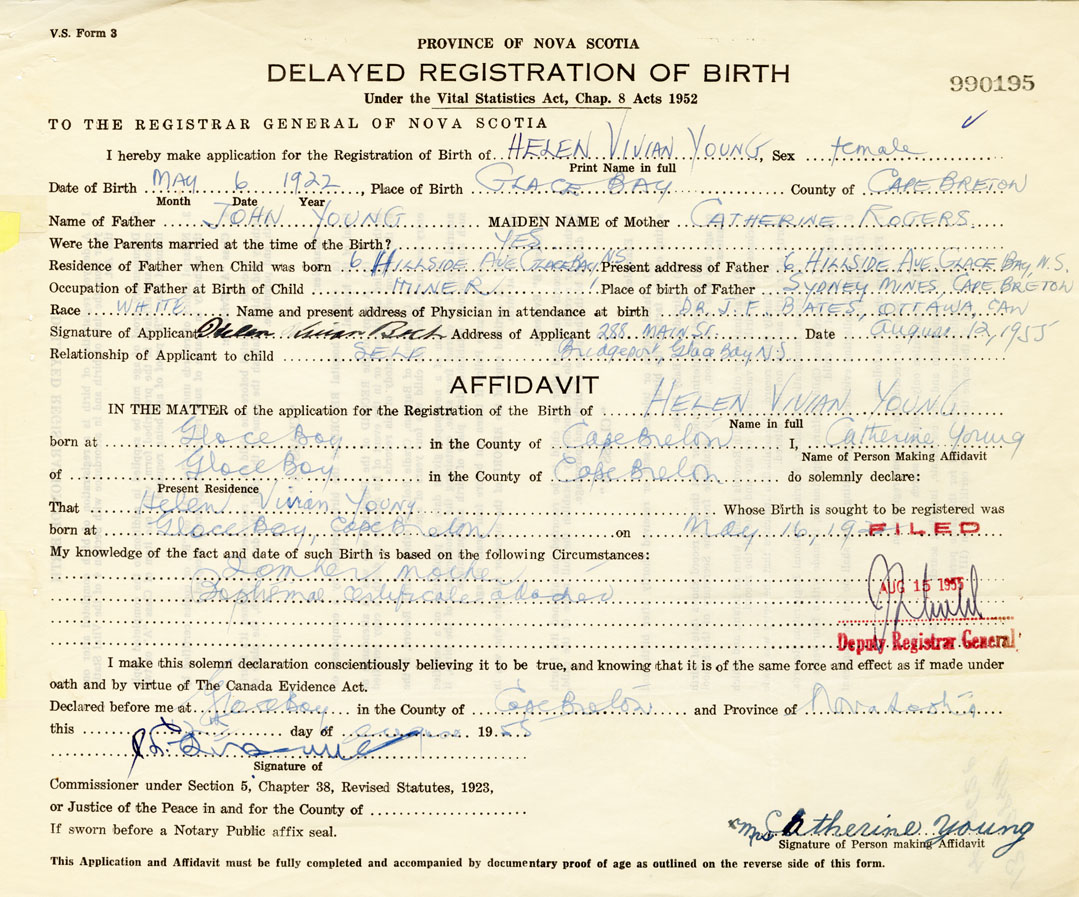 V.S. Form 3
PROVINCE OF NOVA SCOTIA
DELAYED REGISTRATION OF BIRTH
990195
Under the Vital Statistics Act, Chap. 8 Acts 1952
TO THE REGISTRAR GENERAL OF NOVA SCOTIA
I hereby make application for the Registration of Birth of HELEN VIVIAN YOUNG, Sex female
Print Name in full
Date of Birth MAY 6 1922, Place of Birth GLACE BAY County of CAPE BRETON
Month Date Year
Name of Father JOHN YOUNG MAIDEN NAME of Mother CATHERINE ROGERS
Were the Parents married at the time of the Birth? YES
Residence of Father when Child was born 6 HILLSIDE AVE GLACE BAY N.S. Present address of Father 6 HILLSIDE AVE GLACE BAY, N.S.
Occupation of Father at Birth of Child MINER Place of birth of Father SYDNEY MINES, CAPE BRETON
Race WHITE Name and present address of Physician in attendance at birth DR. J. F. BATES, OTTAWA, CAN
Signature of Applicant Helen Vivian Address of Applicant 288 MAIN ST. Date August 12, 1955
Relationship of Applicant to child SELF Bridgeport, Glace Bay N.S.
AFFIDAVIT
IN THE MATTER of the application for the Registration of the Birth of HELEN VIVIAN YOUNG
Name in full
born at Glace Bay in the County of Cape Breton I, Catherine Young
Name of Person Making Affidavit
of Glace Bay in the County of Cape Breton do solemnly declare:
Present Residence
That Helen Vivian Young Whose Birth is sought to be registered was
born at Glace Bay, Cape Breton on May 16, 19
FILED
My knowledge of the fact and date of such Birth is based on the following Circumstances:
I am her mother
Baptismal certificate attached
AUG 15 1955
Deputy Registrar General
I make this solemn declaration conscientiously believing it to be true, and knowing that it is of the same force and effect as if made under
oath and by virtue of The Canada Evidence Act.
Declared before me at Glace Bay in the County of Cape Breton and Province of Nova Scotia
this 12th day of August 1955
Signature of
Commissioner under Section 5, Chapter 38, Revised Statutes, 1923,
or Justice of the Peace in and for the County of
If sworn before a Notary Public affix seal.
Mrs Catherine Young
Signature of Person making Affidavit
This Application and Affidavit must be fully completed and accompanied by documentary proof of age as outlined on the reverse side of this form.